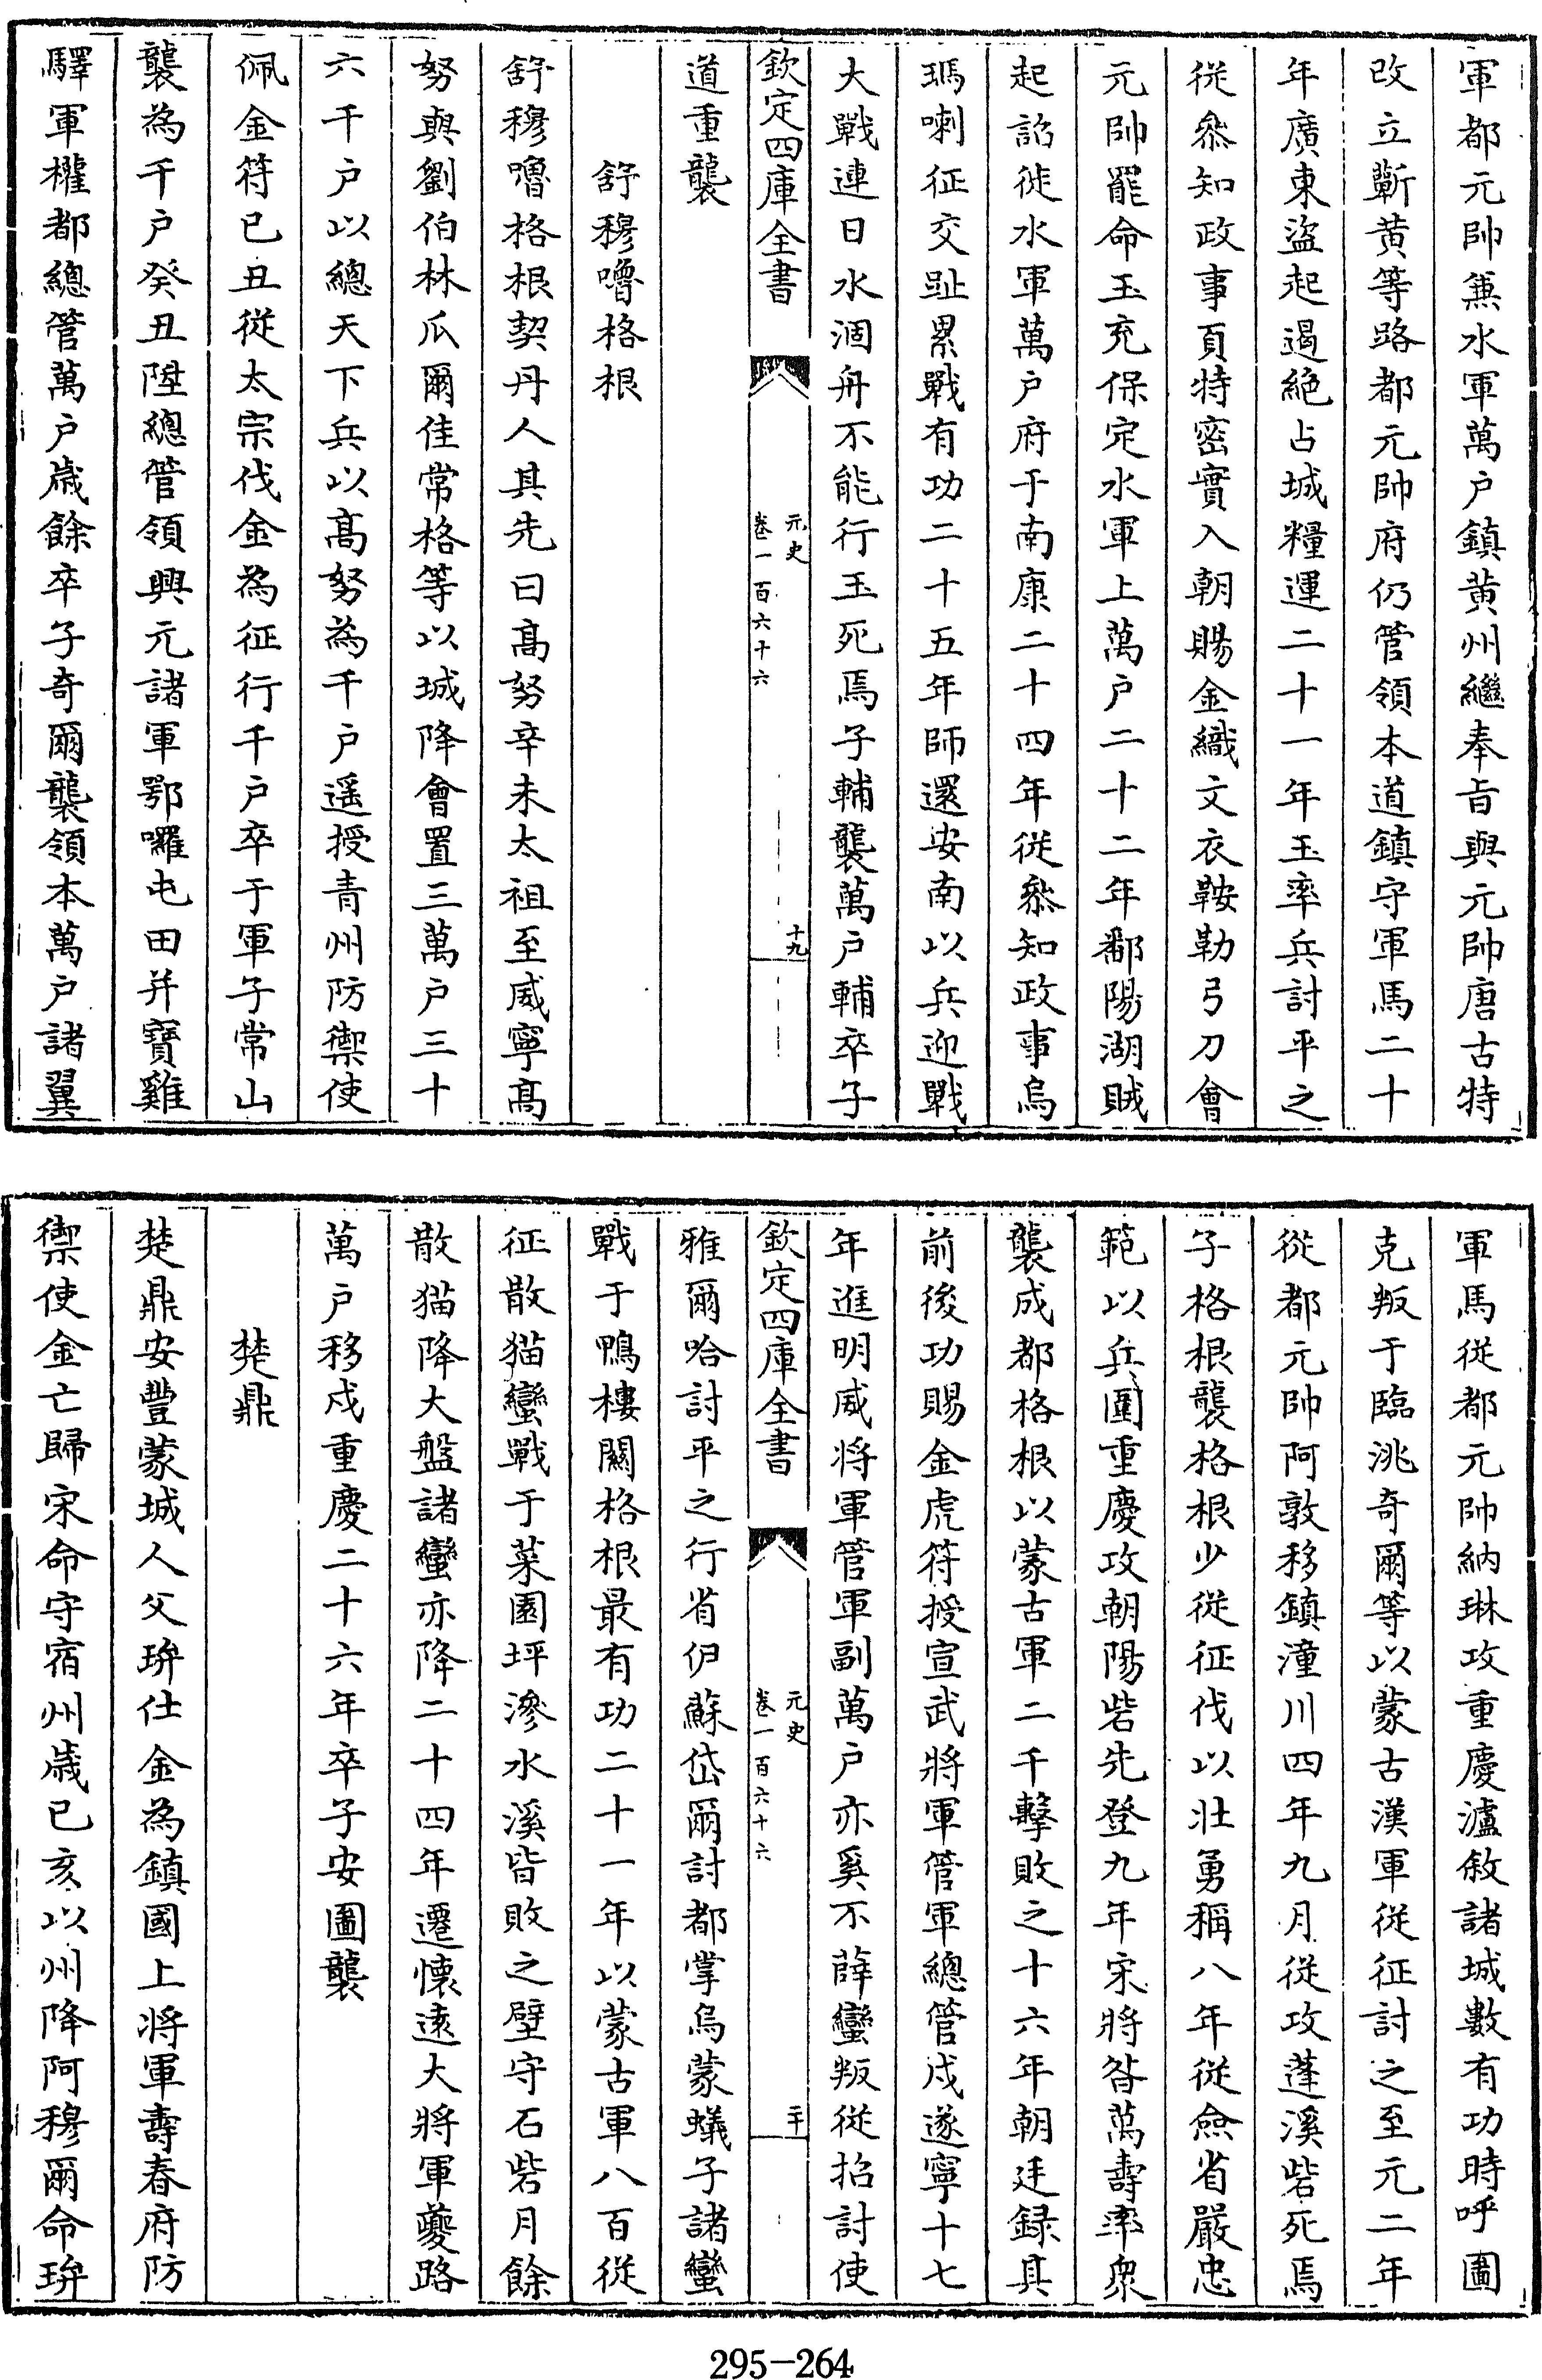 軍都元帥兼水軍萬户鎮黄州繼奉旨與元帥唐古特
改立蘄黄等路都元帥府仍管領本道鎮守軍馬二十
年廣東盗起遏絶占城糧運二十一年玉率兵討平之
從叅知政事頁特密實入朝賜金織文衣鞍勒弓刀會
元帥罷命玉充保定水軍上萬户二十二年鄱陽湖賊
起詔徙水軍萬户府于南康二十四年從叅知政事烏
瑪喇征交趾累戰有功二十五年師還安南以兵迎戰
大戰連日水涸舟不能行玉死焉子輔襲萬户輔卒子
欽定四庫全書
元史
卷一百六十六
十九
道重襲
舒穆嚕格根
舒穆嚕格根契丹人其先曰髙努辛未太祖至威寧髙
努與劉伯林瓜爾佳常格等以城降會置三萬户三十
六千户以總天下兵以髙努為千户遥授青州防禦使
佩金符已丑從太宗伐金為征行千户卒于軍子常山
襲為千户癸丑陞總管領興元諸軍鄂囉屯田并寶雞
驛軍權都總管萬户歲餘卒子奇爾襲領本萬户諸翼
軍馬從都元帥納琳攻重慶瀘敘諸城數有功時呼圖
克叛于臨洮奇爾等以蒙古漢軍從征討之至元二年
從都元帥阿敦移鎮潼川四年九月從攻蓬溪砦死焉
子格根襲格根少從征伐以壯勇稱八年從僉省嚴忠
範以兵圍重慶攻朝陽砦先登九年宋將昝萬壽率衆
襲成都格根以蒙古軍二千擊敗之十六年朝廷録其
前後功賜金虎符授宣武將軍管軍總管戍遂寧十七
年進明威將軍管軍副萬户亦奚不薛蠻叛從招討使
欽定四庫全書
元史
卷一百六十六
二十
雅爾哈討平之行省伊蘇岱爾討都掌烏蒙蟻子諸蠻
戰于鴨樓關格根最有功二十一年以蒙古軍八百從
征散猫蠻戰于菜園坪滲水溪皆敗之壁守石砦月餘
散猫降大盤諸蠻亦降二十四年遷懷遠大將軍夔路
萬户移戍重慶二十六年卒子安圖襲
楚鼎
楚鼎安豐蒙城人父珎仕金為鎮國上將軍壽春府防
禦使金亡歸宋命守宿州歲已亥以州降阿穆爾命珎
295-264